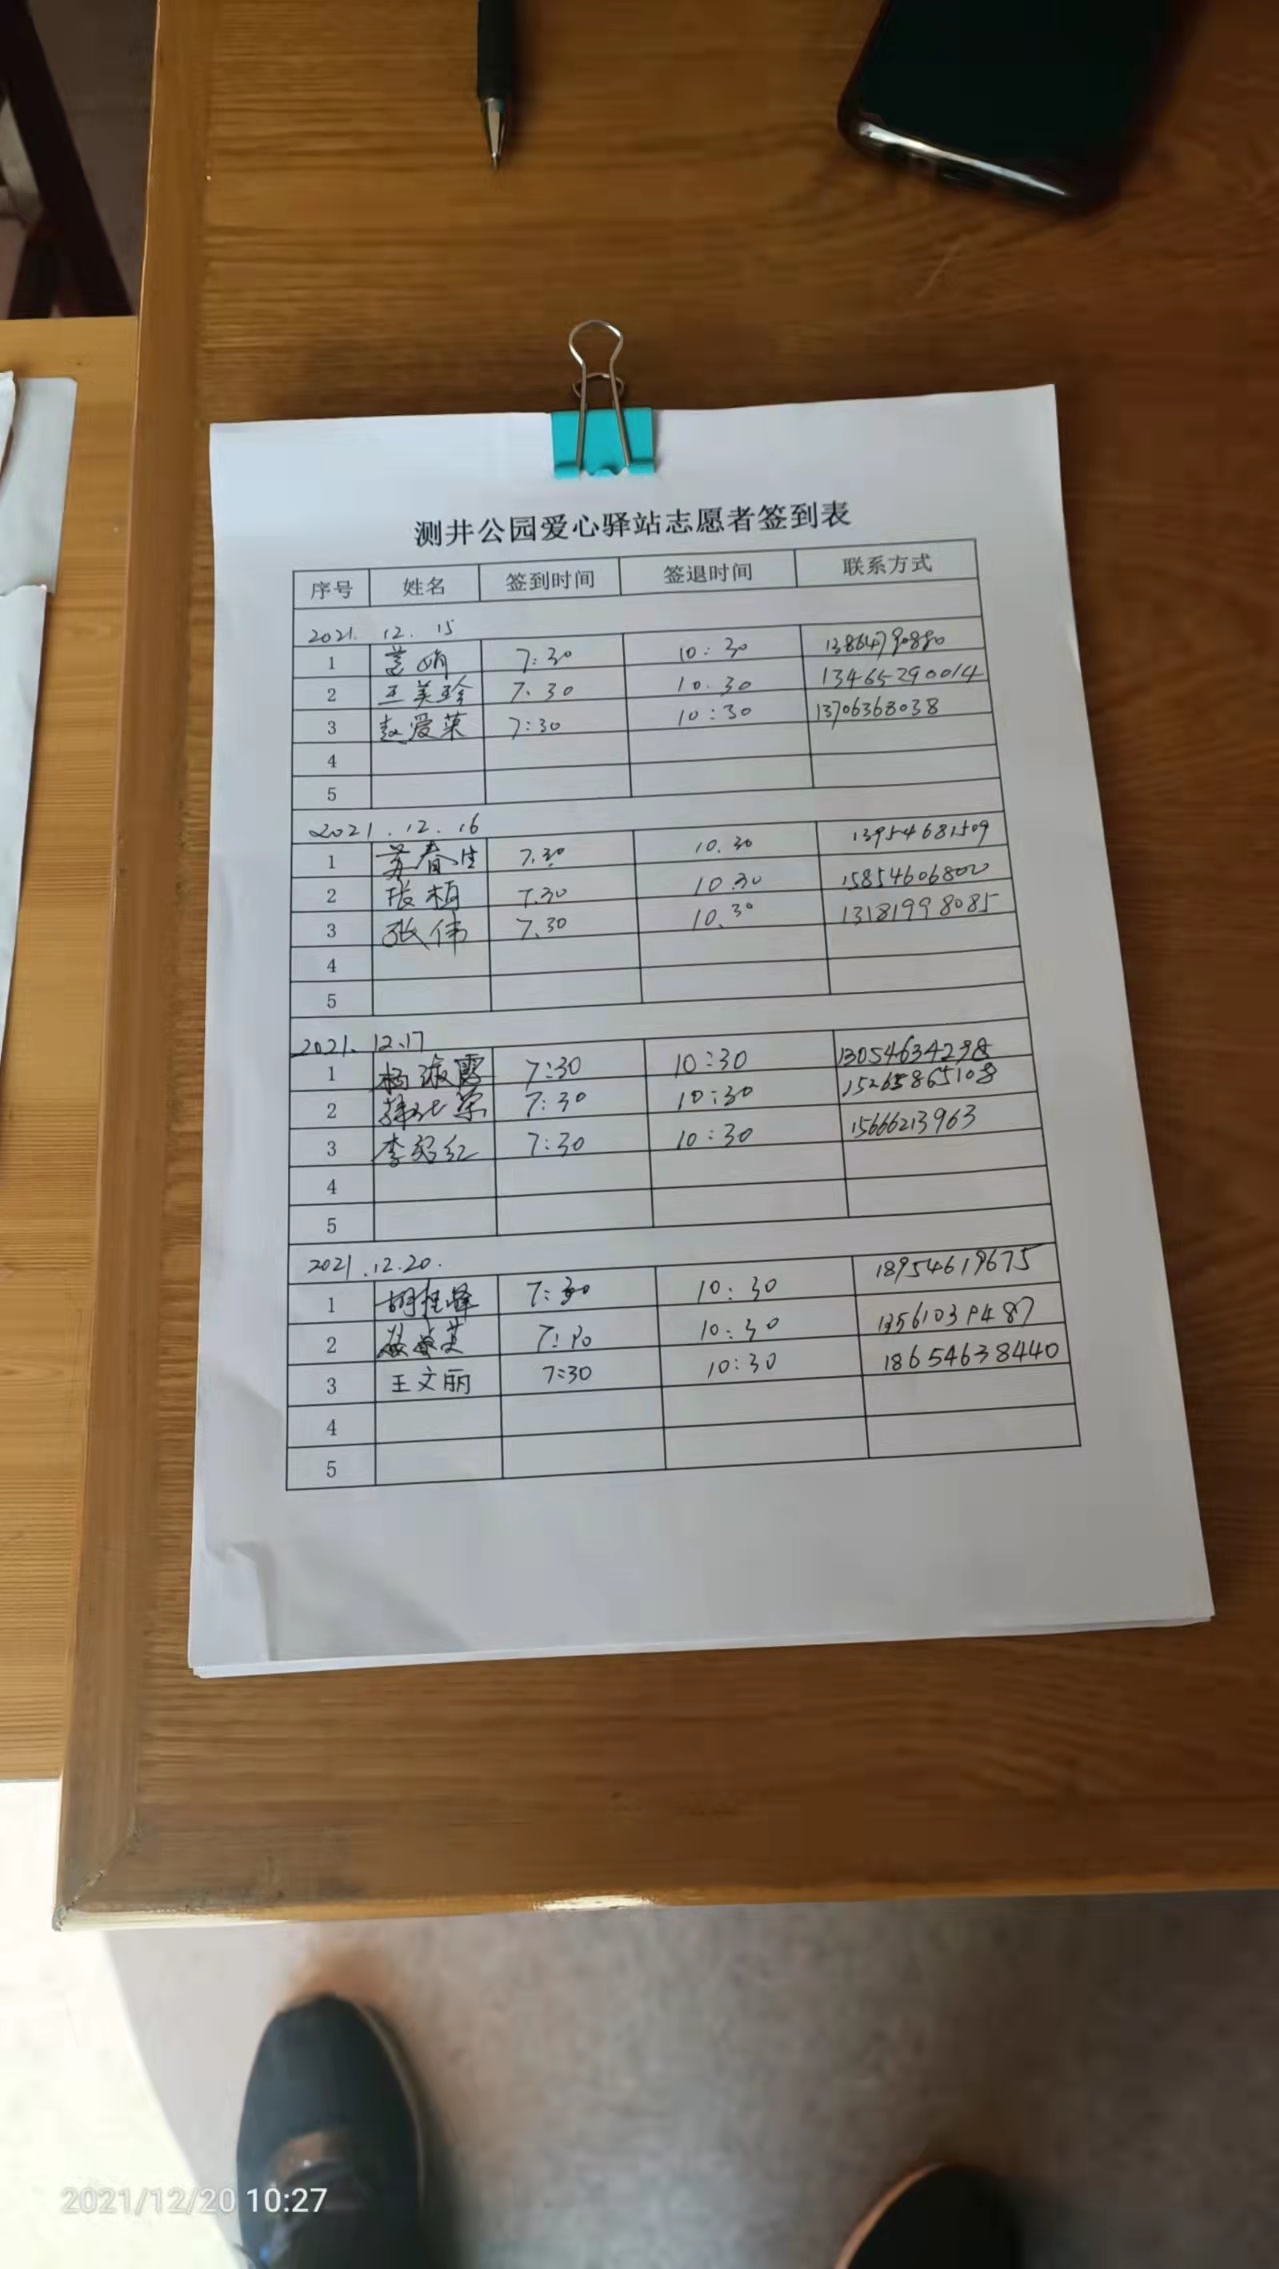 测井公园爱心驿站志愿者签到表
序号 姓名 签到时间 签退时间 联系方式
2021. 12. 15
1 7:30 10:30 13864790880
2 王美珍 7.30 10.30 13465290014
3 赵爱菜 7:30 10:30 13706368038
4
5
2021.12.16
1 苏春生 7.30 10.30 13954681509
2 张植 7.30 10.30 15854606800
3 张伟 7.30 10.30 13181998085
4
5
2021.12.17
1 杨淑霞 7:30 10:30 13054634298
2 7:30 10:30 15265865108
3 李红 7:30 10:30 15666213963
4
5
2021.12.20.
1 胡桂峰 7:30 10:30 18954619675
2 7:30 10:30 13561039487
3 王文丽 7:30 10:30 18654638440
4
5
2021/12/20 10:27